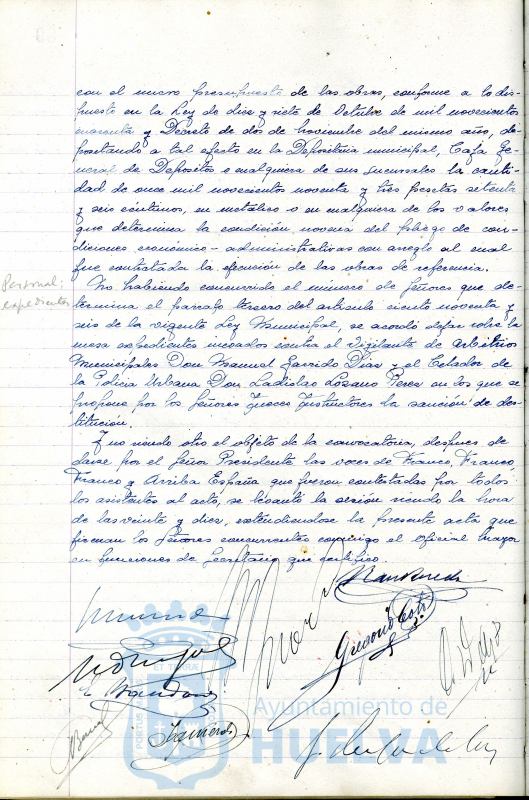 con el mismo presupuesto de las obras, conforme a lo dis-
puesto en la Ley de diez y siete de Octubre de mil novecientos
cuarenta y Decreto de dos de Noviembre del mismo año, de-
positando a tal efecto en la Depositaria municipal, Caja Ge-
neral de Depósitos o cualquiera de sus sucursales la canti-
dad de once mil novecientos noventa y tres pesetas setenta
y seis céntimos, en metálico o en cualquiera de los valores
que determina la condición novena del pliego de con-
diciones económico-administrativas con arreglo al cual
fue contratada la ejecución de las obras de referencia.
Personal:
expedientes
No habiendo concurrido el número de Señores que de-
termina el párrafo tercero del artículo ciento noventa y
seis de la vigente Ley Municipal, se acordó dejar sobre la
mesa expedientes incoados contra el Vigilante de arbitrios
Municipales Don Manuel Garrido Dias y el Celador de
la Policia Urbana Don Ladislao Lozano Perez en los que se
propone por los Señores Jueces Instructores la sanción de des-
titución.
Y no siendo otro el objeto de la convocatoria, despues de
darse por el Señor Presidente las voces de Franco, Franco,
Franco y Arriba España que fueron contestadas por todos
los asistentes al acto, se levantó la sesión siendo la hora
de las veinte y diez, extendiendose la presente acta que
firman los Señores concurrentes conmigo el Oficial Mayor
en funciones de Secretario que certifico.
Gregorio
Izquierdo
Ayuntamiento de
HUELVA